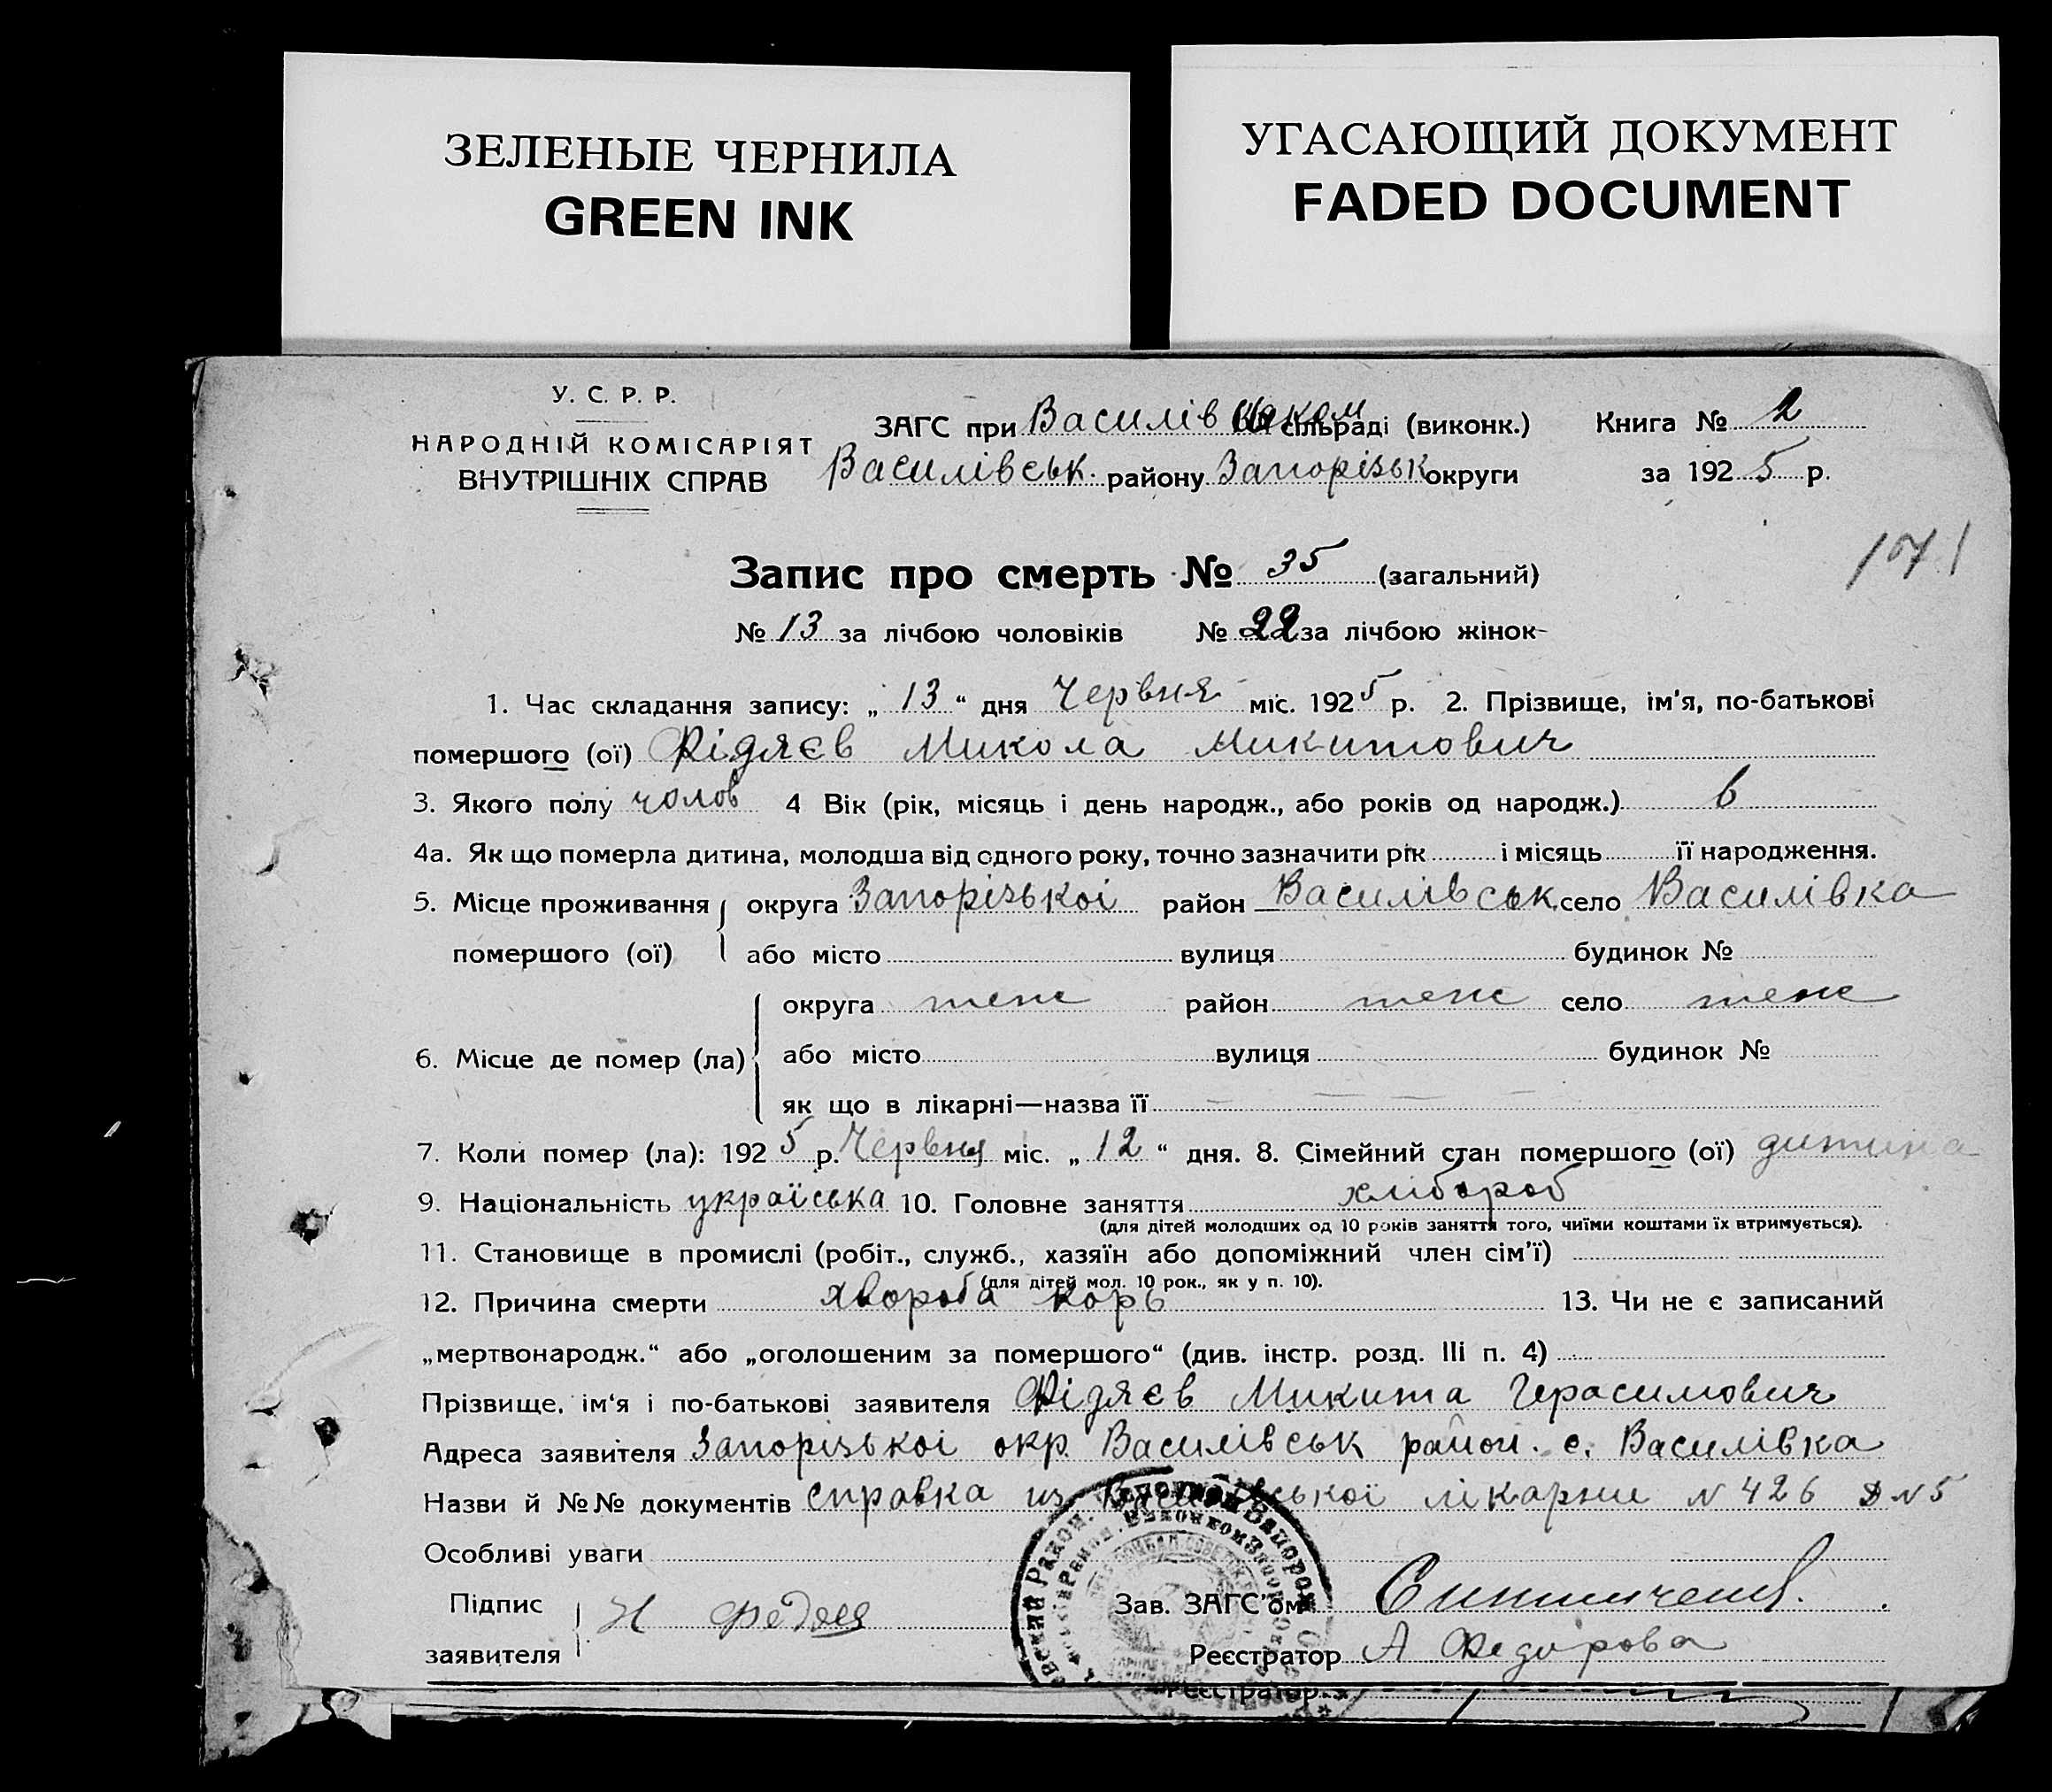 ЗЕЛЕНЫЕ ЧЕРНИЛА
GREEN INK
УГАСАЮЩИЙ ДОКУМЕНТ
FADED DOCUMENT
У. С. Р. Р.
НАРОДНІЙ КОМІСАРІЯТ
ВНУТРІШНІХ СПРАВ
ЗАГС при Василів сільраді (виконк.) Книга № 2
Василівськ. району Запорізьк округи за 1925 р.
Запис про смерть № 35 (загальний)
№ 13 за лічбою чоловіків № 22 за лічбою жінок
1. Час складання запису: „13“ дня Червня міс. 1925 р. 2. Прізвище, ім'я, по-батькові
помершого (ої) Фідяєв Микола Микитович
3. Якого полу чолов 4 Вік (рік, місяць і день народж., або років од народж.) 6
4а. Як що померла дитина, молодша від одного року, точно зазначити рік і місяць її народження.
5. Місце проживання округа Запорізькоі район Василівськ. село Василівка
помершого (ої) або місто вулиця будинок №
округа теж район теж село теж
6. Місце де помер (ла) або місто вулиця будинок №
як що в лікарні—назва її
7. Коли помер (ла): 1925 р. Червня міс. „12“ дня. 8. Сімейний стан помершого (ої) дитина
9. Національність україська 10. Головне заняття хлібороб
(для дітей молодших од 10 років заняття того, чиїми коштами їх втримується).
11. Становище в промислі (робіт., служб., хазяїн або допоміжний член сім'ї)
(для дітей мол. 10 рок., як у п. 10).
12. Причина смерти хвороба корь 13. Чи не є записаний
„мертвонародж.“ або „оголошеним за помершого“ (див. інстр. розд. III п. 4)
Прізвище, ім'я і по-батькові заявителя Фідяєв Микита Герасимович
Адреса заявителя Запорізькоі окр. Василівськ район. с. Василівка
Назви й №№ документів справка из Василівськоі лікарні N 426 N 5
Особливі уваги
Підпис
заявителя
Зав. ЗАГС'ом
Реєстратор А Федорова
Реєстратор